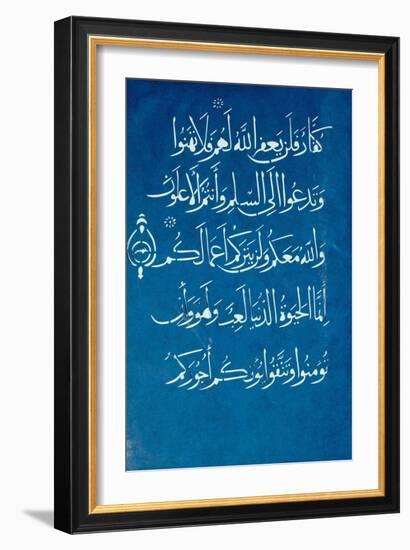 كُفَّارٌ فَلَن يَغْفِرَ اللَّهُ لَهُمْ فَلَا تَهِنُوا
وَتَدْعُوا إِلَى السَّلْمِ وَأَنتُمُ الْأَعْلَوْنَ
وَاللَّهُ مَعَكُمْ وَلَن يَتِرَكُمْ أَعْمَالَكُمْ
إِنَّمَا الْحَيَوةُ الدُّنْيَا لَعِبٌ وَلَهْوٌ وَإِن
تُؤْمِنُوا وَتَتَّقُوا يُؤْتِكُمْ أُجُورَكُمْ